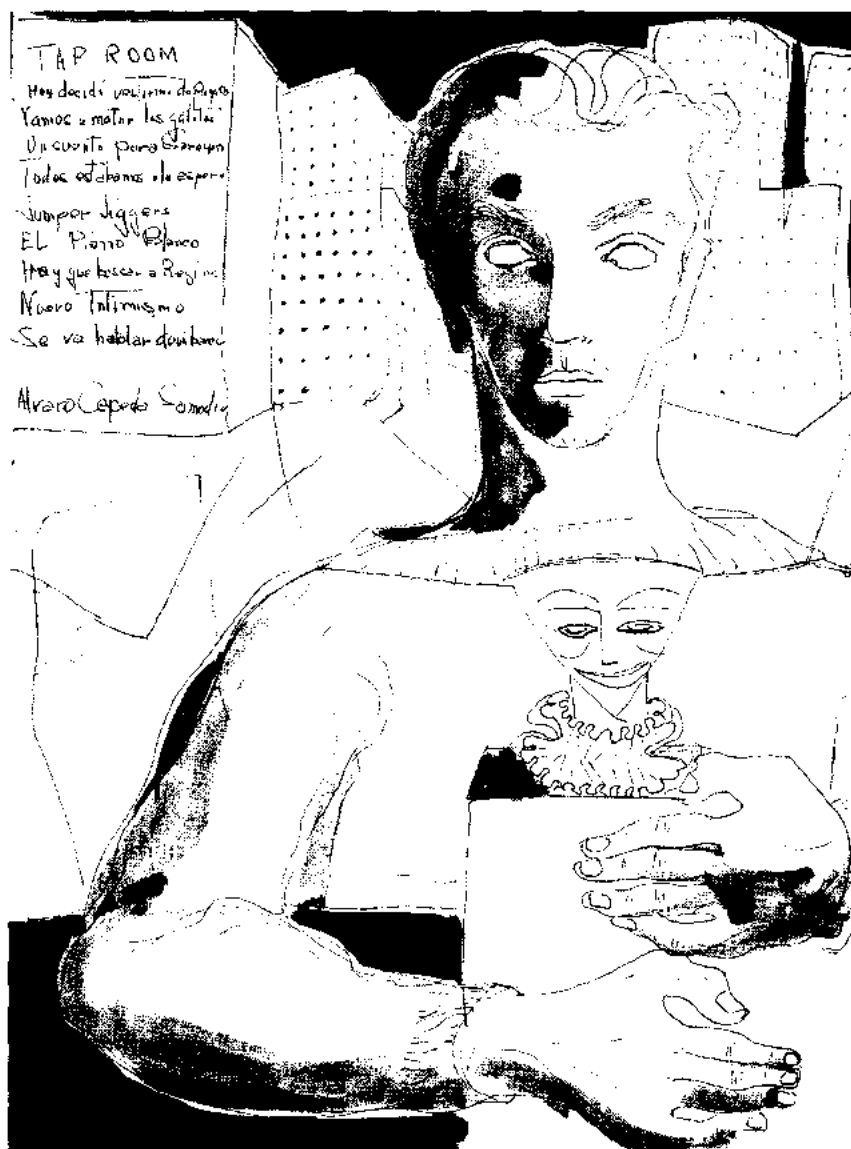 TAP ROOM
Hoy decidí vestirme de Payaso
Vamos a matar los gatitos
Un cuento para Saroyan
Todos estábamos a la espera
Jumper Jiggers
EL Piano Blanco
Hay que buscar a Regina
Nuevo Intimismo
Se va hablar
Alvaro Cepeda Samudio